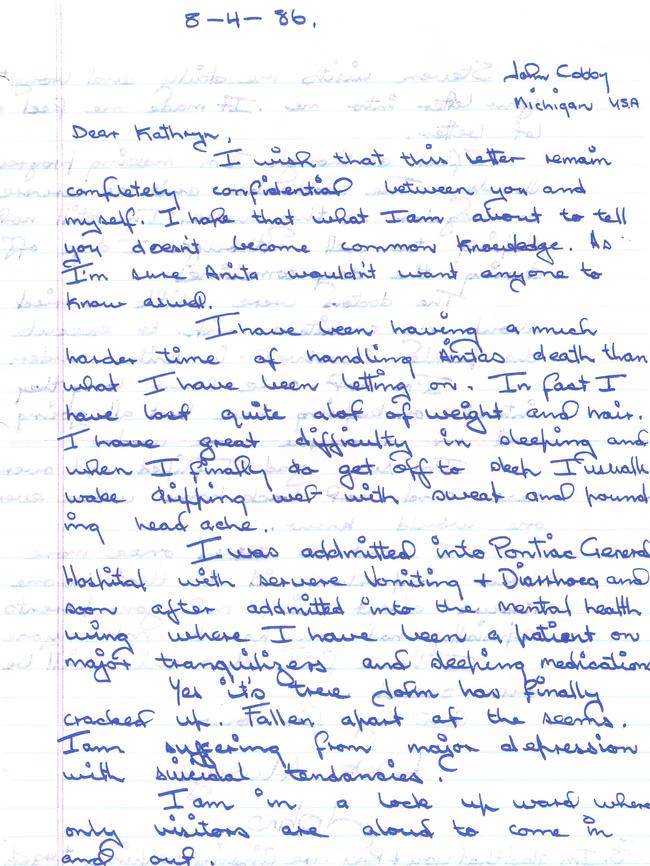 8-4-86.
John Cobby
Michigan USA
Dear Kathryn,
I wish that this letter remain
completely confidential between you and
myself. I hope that what I am about to tell
you doesn't become common knowledge. As
I'm sure Anita wouldn't want anyone to
know aswel.
I have been having a much
harder time of handling Anitas death than
what I have been letting on. In fast I
have lost quite alot of weight and hair.
I have great difficulty in sleeping and
when I finally do get off to sleep I usuall
wake dripping wet with sweat and pound
ing head ache.
I was addmitted into Pontiac General
Hospital with servere Vomiting + Diarrhoea and
soon after addmitted into the mental health
wing where I have been a patient on
major tranquilizers and sleeping medication
Yes it's true John has finally
cracked up. Fallen apart at the seems.
I am suffering from major depression
with suicidal tendancies.
I am in a lock up ward where
only visitors are aloud to come in
and out.